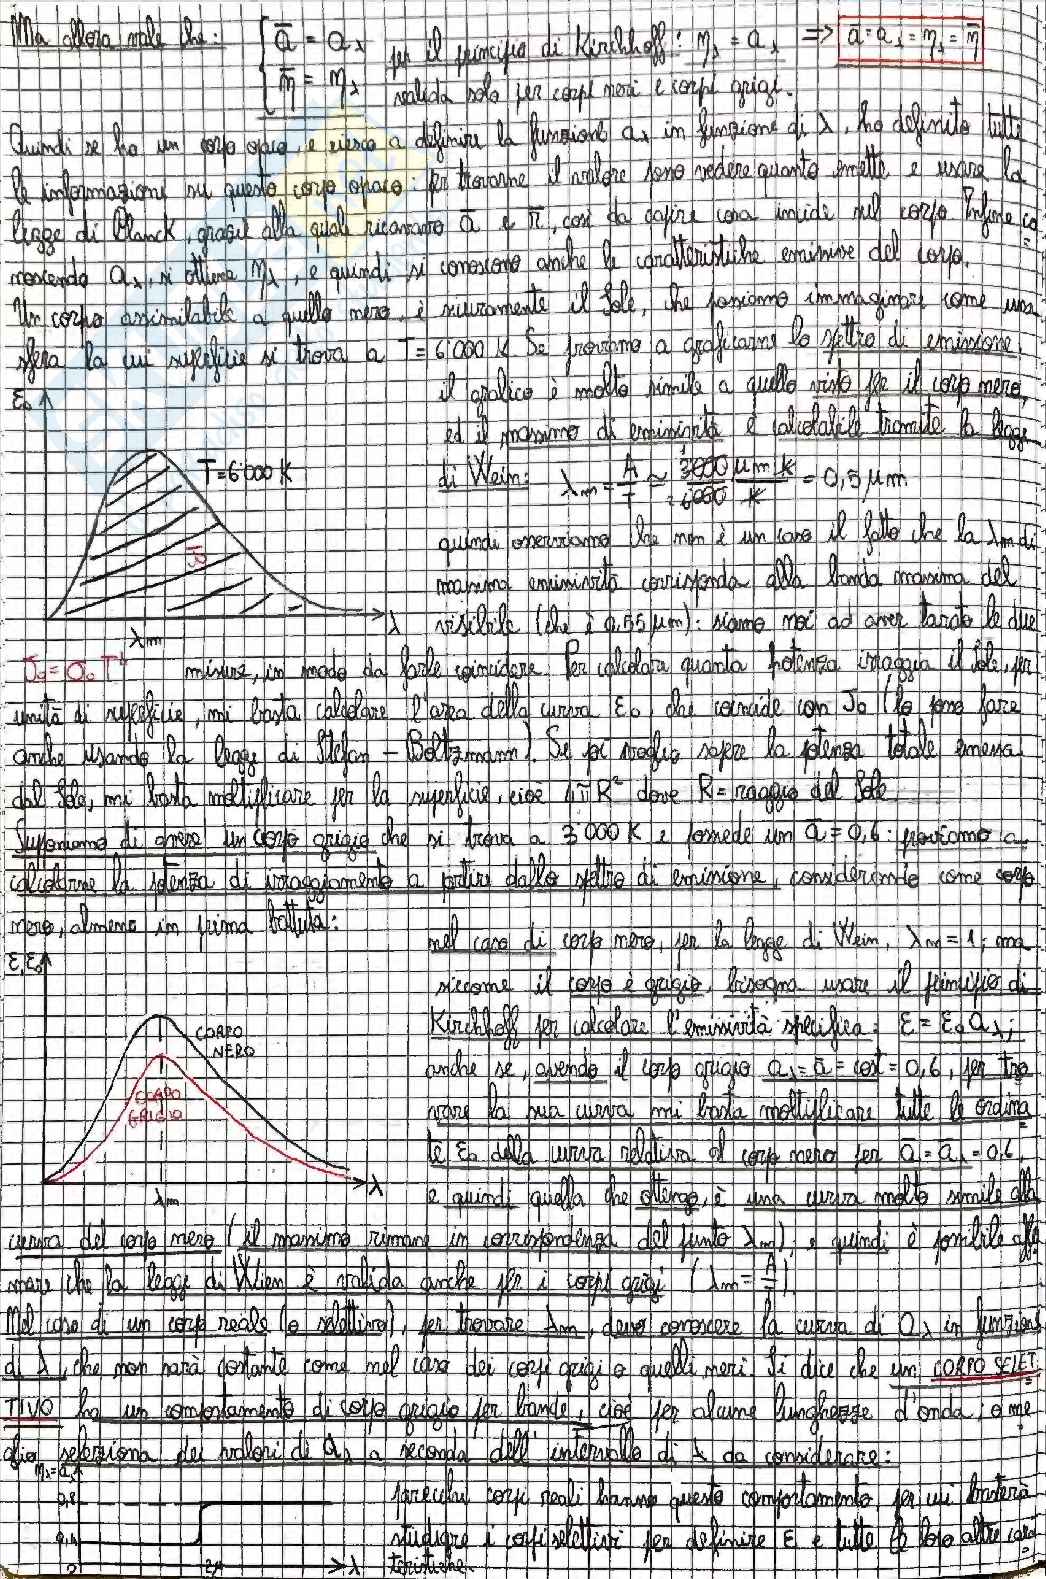 Ma allora vale che: { ā = aλ
η̄ = ηλ
per il principio di Kirchhoff: ηλ = aλ ⇒ ā = aλ = ηλ = η̄
valida solo per corpi neri e corpi grigi.
Quindi se ho un corpo opaco, e riesco a definire la funzione aλ in funzione di λ, ho definito tutte
le informazioni su questo corpo opaco: per trovarne il valore sono vedere quanto emette e usare la
legge di Planck, grazie alla quale ricaviamo ā e r̄, così da capire cosa incide sul corpo. Infine co
noscendo aλ, si ottiene ηλ, e quindi si conoscono anche le caratteristiche emissive del corpo.
Un corpo assimilabile a quello nero, è sicuramente il Sole, che possiamo immaginare come una
sfera la cui superficie si trova a T = 6'000 K. Se proviamo a graficarne lo spettro di emissione,
il grafico è molto simile a quello visto per il corpo nero,
ed il massimo di emissività è calcolabile tramite la legge
di Wein: λm = A/T ≃ 3000/6000 μm K/K = 0,5 μm
ε₀
T = 6'000 K
J₀
λ
λm
J₀ = σ₀ T⁴
quindi osserviamo che non è un caso il fatto che la λm di
massima emissività corrisponda alla banda massima del
visibile (che è 0,55 μm): siamo noi ad aver tarato le due
misure, in modo da farle coincidere. Per calcolare quanta potenza irraggia il Sole, per
unità di superficie, mi basta calcolare l'area della curva ε₀, che coincide con J₀ (lo posso fare
anche usando la legge di Stefan - Boltzmann). Se poi voglio sapere la potenza totale emessa
dal Sole, mi basta moltiplicare per la superficie, cioè 4πR² dove R = raggio del Sole.
Supponiamo di avere un corpo grigio che si trova a 3'000 K e possiede un ā = 0,6: proviamo a
calcolarne la potenza di irraggiamento a partire dallo spettro di emissione, considerando come corpo
nero, almeno in prima battuta:
ε, ε₀
CORPO
NERO
CORPO
GRIGIO
λ
λm
nel caso di corpo nero, per la legge di Wein, λm = 1; ma
siccome il corpo è grigio, bisogna usare il principio di
Kirchhoff per calcolare l'emissività specifica: ε = ε₀ aλ;
anche se, avendo il corpo grigio aλ = ā = cost = 0,6, per tro
vare la sua curva mi basta moltiplicare tutte le ordina
te ε₀ della curva relativa al corpo nero per ā = aλ = 0,6,
e quindi quella che ottengo, è una curva molto simile alla
curva del corpo nero (il massimo rimane in corrispondenza del punto λm); e quindi è possibile affer
mare che la legge di Wien è valida anche per i corpi grigi (λm = A/T)
Nel caso di un corpo reale (o selettivo), per trovare λm, devo conoscere la curva di aλ in funzione
di λ, che non sarà costante come nel caso dei corpi grigi o quelli neri. Si dice che un CORPO SELET
TIVO ha un comportamento di corpo grigio per bande, cioè per alcune lunghezze d'onda, o me
glio seleziona dei valori di aλ a seconda dell'intervallo di λ da considerare:
ηλ = aλ
0,8
0
λ
parecchi corpi reali hanno questo comportamento, per cui basterà
studiare i corpi selettivi per definire ε e tutte le loro altre carat
teristiche.